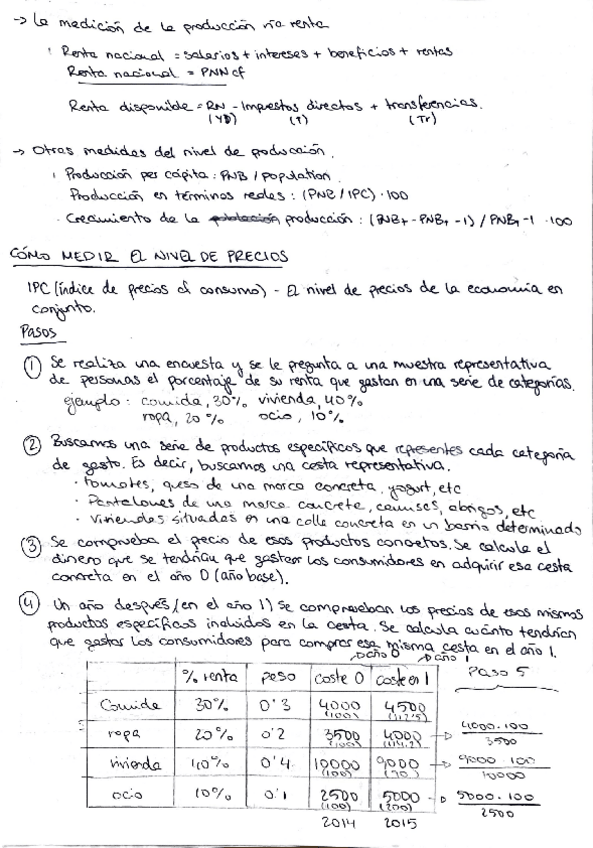 -> La medición de la producción vía renta
· Renta nacional = salarios + intereses + beneficios + rentas
Renta nacional = PNNcf
Renta disponible = RN - Impuestos directos + transferencias.
(YD) (T) (Tr)
-> Otras medidas del nivel de producción.
· Producción per cápita : PNB / population
Producción en términos reales : (PNB / IPC) · 100
· Crecimiento de la producción : (PNBT - PNBT -1) / PNBT -1 · 100
CÓMO MEDIR EL NIVEL DE PRECIOS
IPC (índice de precios al consumo) - El nivel de precios de la economía en
conjunto.
Pasos
① Se realiza una encuesta y se le pregunta a una muestra representativa
de personas el porcentaje de su renta que gastan en una serie de categorías.
ejemplo : comida, 30% vivienda, 40%
ropa, 20% ocio, 10%
② Buscamos una serie de productos específicos que representes cada categoría
de gasto. Es decir, buscamos una cesta representativa.
· tomates, queso de una marca concreta, yogurt, etc
· Pantalones de una marca concreta, camisas, abrigos, etc
· Viviendas situadas en una calle concreta en un barrio determinado
③ Se comprueba el precio de esos productos concretos. Se calcula el
dinero que se tendrían que gastar los consumidores en adquirir esa cesta
concreta en el año 0 (año base).
④ Un año después (en el año 1) se comprueban los precios de esos mismos
productos específicos incluidos en la cesta. Se calcula cuánto tendrían
que gastar los consumidores para comprar esa misma cesta en el año 1.
año 0 año 1
% renta peso coste 0 coste en 1 Paso 5
Comida 30% 0'3 4000 (100) 4500 (112'5)
ropa 20% 0'2 3500 (100) 4000 (114.2) -> 4000·100 / 3500
vivienda 40% 0'4 10000 (100) 9000 (90) -> 9000 · 100 / 10000
ocio 10% 0'1 2500 (100) 5000 (200) -> 5000 · 100 / 2500
2014 2015